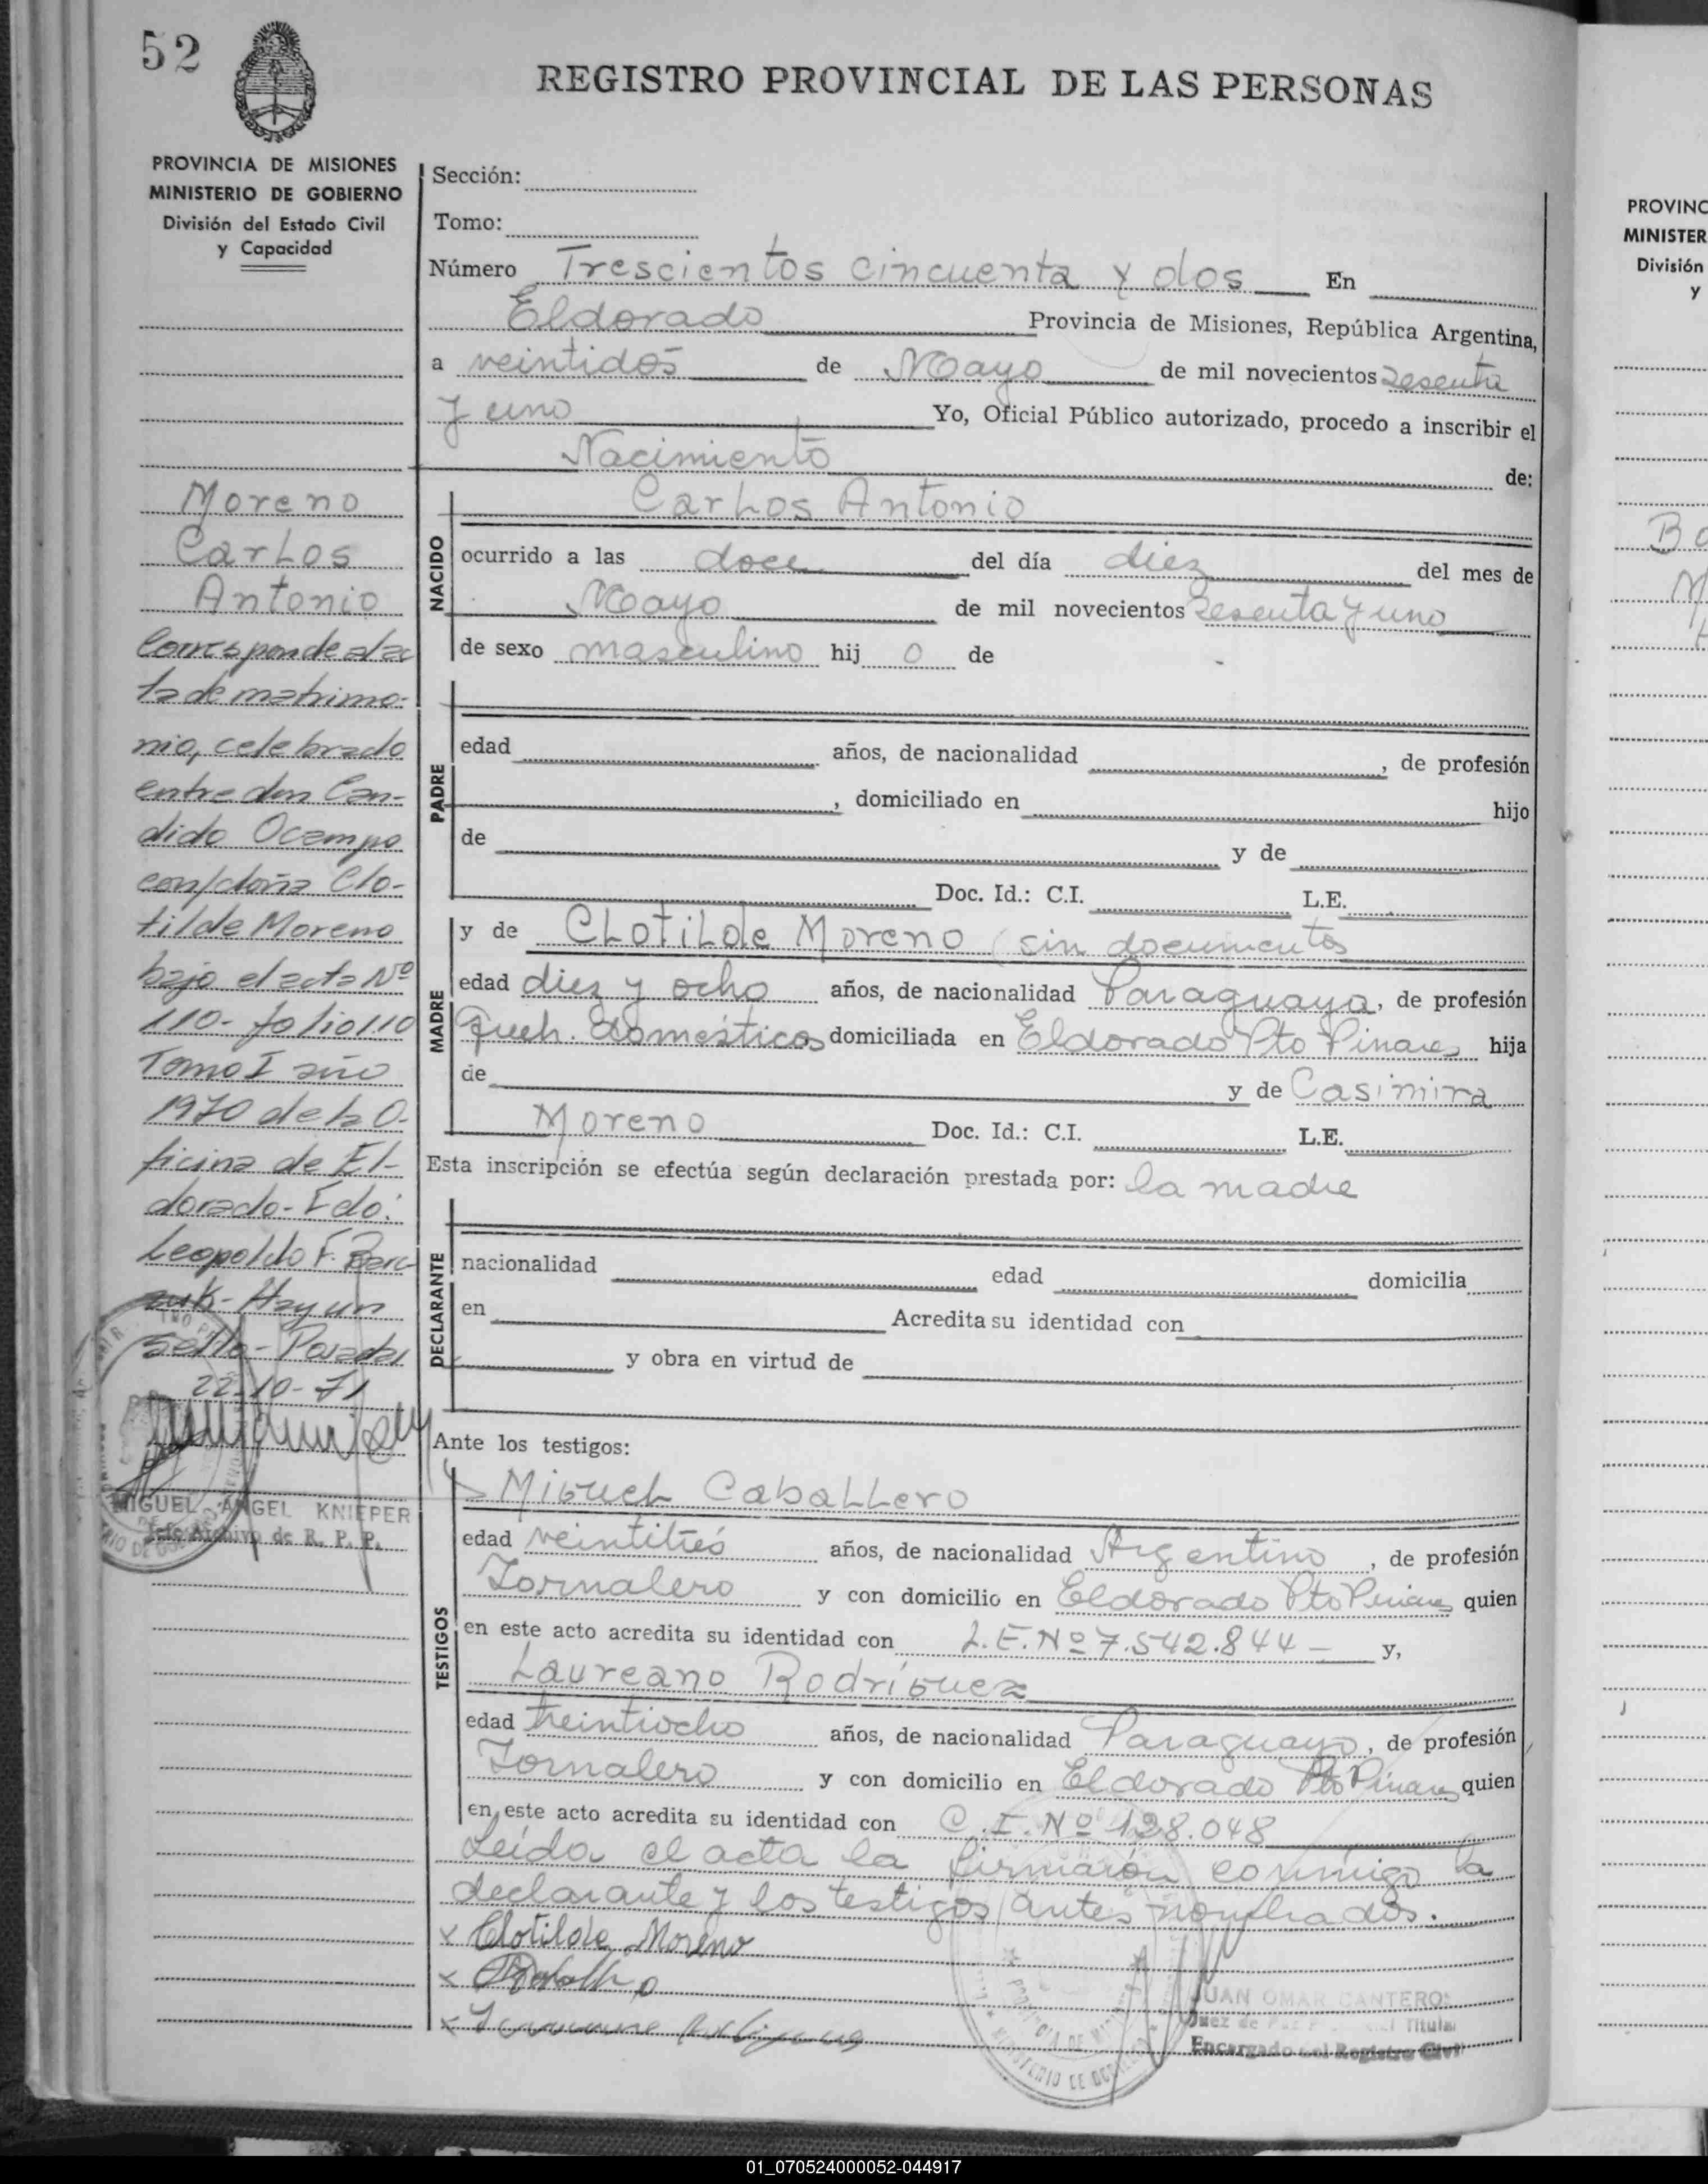 52
REGISTRO PROVINCIAL DE LAS PERSONAS
PROVINCIA DE MISIONES
MINISTERIO DE GOBIERNO
División del Estado Civil
y Capacidad
Moreno
Carlos
Antonio
Corresponde al ac
ta de matrimo-
nio, celebrado
entre don Can-
dido Ocampo
con/doña Clo-
tilde Moreno
bajo el acta Nº
110- folio 110
Tomo I año
1970 de la O-
ficina de El-
dorado- Fdo:
Leopoldo F. Barc
zuk- Hay un
sello- Posadas
22-10-71
MIGUEL ANGEL KNIEPER
Jefe Archivo de R. P. P.
Sección:
Tomo:
Número Trescientos cincuenta y dos En
Eldorado Provincia de Misiones, República Argentina,
a veintidos de Mayo de mil novecientos sesenta
y uno Yo, Oficial Público autorizado, procedo a inscribir el
Nacimiento de:
NACIDO
Carlos Antonio
ocurrido a las doce del día diez del mes de
Mayo de mil novecientos sesenta y uno
de sexo masculino hij o de
PADRE
edad años, de nacionalidad , de profesión
, domiciliado en hijo
de y de
Doc. Id.: C.I. L.E.
MADRE
y de Clotilde Moreno (sin documentos
edad diez y ocho años, de nacionalidad Paraguaya, de profesión
Queh. domésticos domiciliada en Eldorado Pto Pinares hija
de y de Casimira
Moreno Doc. Id.: C.I. L.E.
Esta inscripción se efectúa según declaración prestada por: la madre
DECLARANTE
nacionalidad edad domicilia
en Acredita su identidad con
y obra en virtud de
Ante los testigos:
TESTIGOS
Miguel Caballero
edad veintitrés años, de nacionalidad Argentino, de profesión
Jornalero y con domicilio en Eldorado Pto Pinares quien
en este acto acredita su identidad con L.E. Nº 7.542.844 - y,
Laureano Rodríguez
edad treintiocho años, de nacionalidad Paraguayo, de profesión
Jornalero y con domicilio en Eldorado Pto Pinares quien
en este acto acredita su identidad con C.I. Nº 128.048
Leída el acta la firmarón conmigo la
declarante y los testigos antes nombrados.
x Clotilde Moreno
x
x
JUAN OMAR CANTERO
Juez de Paz Titular
Encargado del Registro Civil
PROVINC
MINISTER
División
y
01_070524000052-044917